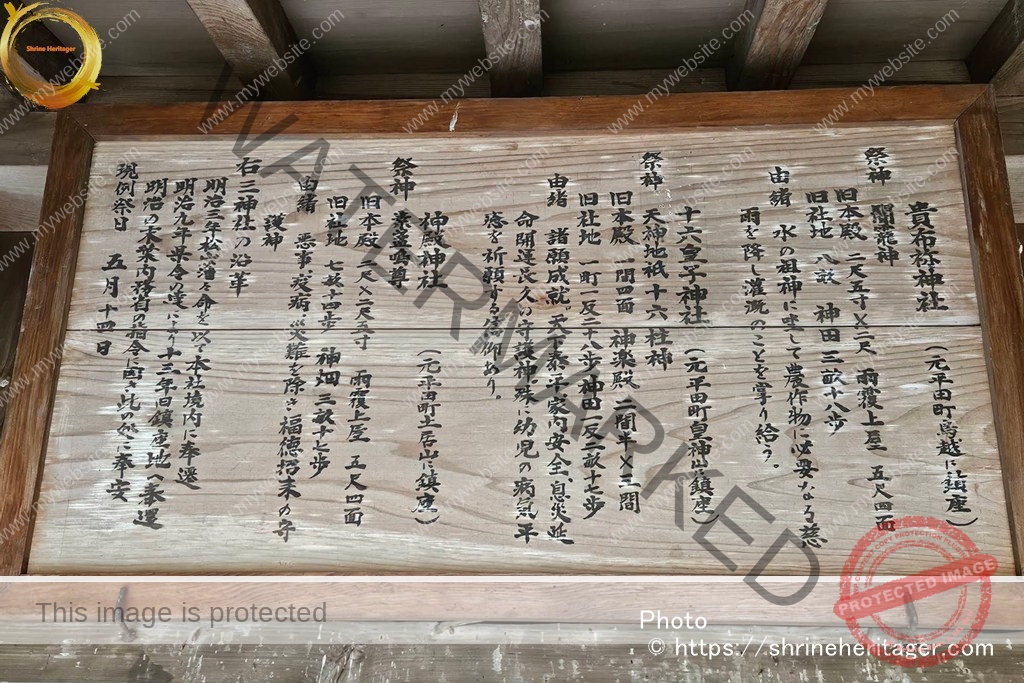 貴布祢神社
(元平田町鳥越に鎮座)
祭神 闇龗神
旧本殿 二尺五寸×二尺 雨覆上屋 五尺四面
旧社地 八畝 神田 三畝十八歩
由緒 水の祖神に坐して農作物に必要なる慈
雨を降し灌漑のことを掌り給う。
十六皇子神社
(元平田町皇神山鎮座)
祭神 天神地祇十六柱神
旧本殿 一間四面 神楽殿 二間半×三間
旧社地 一町一反二十八歩 神田一反一畝十七歩
由緒 諸願成就。天下泰平家内安全、息災延
命開運長久い守護神。殊に幼児の病気平
癒を祈願する信仰あり。
神殿神社
(元平田町土居山に鎮座)
祭神 素盞嗚尊
旧本殿 二尺×二尺五寸 雨覆上屋 五尺四面
旧社地 七畝十四歩 神畑 三畝十七歩
由緒 悪事疫病災難を除き福徳招来の守
護神
右三神社の沿革
明治三年松山藩々命を以て本社境内に奉遷
明治九年県令の達により十三年旧鎮座地へ奉遷
明治の末年内務省の指令に因き此の処に奉安
現例祭日 五月十四日
Shrine Heritager
WATERMARKED
www.mywebsite.com
This image is protected
Photo
© https://shrineheritager.com/
PROTECTED IMAGE
COPY PROTECTION PLUGIN